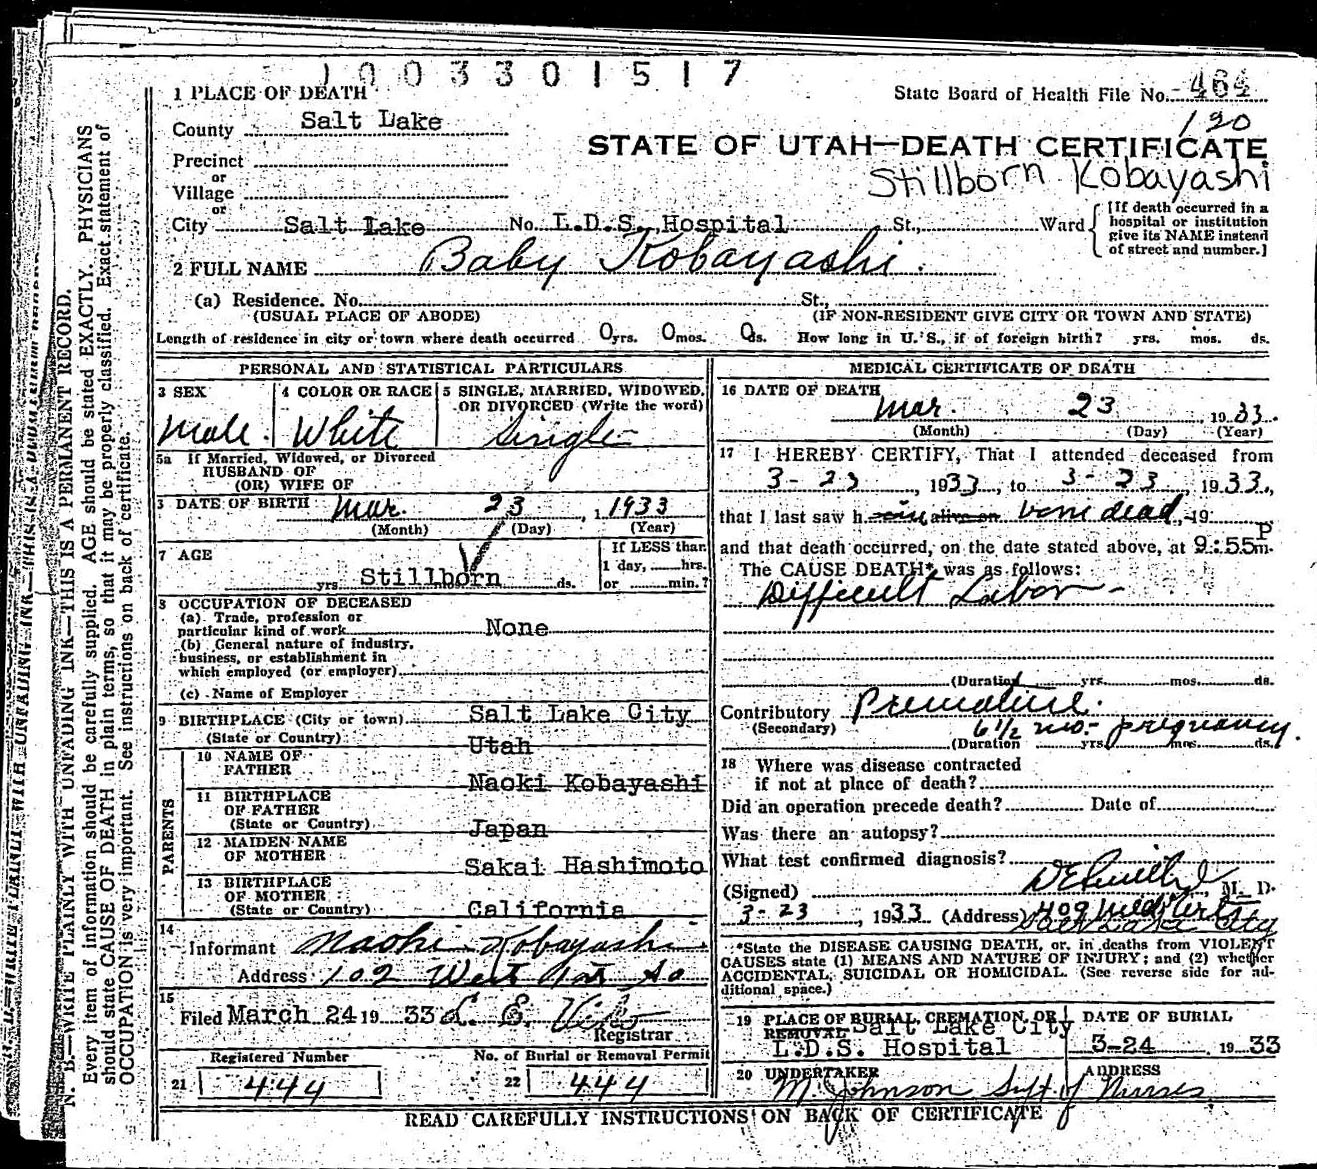 1003301517
1 PLACE OF DEATH
State Board of Health File No. 464
County Salt Lake
120
STATE OF UTAH—DEATH CERTIFICATE
Precinct
or
Stillborn Kobayashi
Village
or
City Salt Lake No. L.D.S. Hospital St., Ward
[If death occurred in a
hospital or institution
give its NAME instead
of street and number.]
2 FULL NAME Baby Kobayashi
(a) Residence. No. St.,
(USUAL PLACE OF ABODE) (IF NON-RESIDENT GIVE CITY OR TOWN AND STATE)
Length of residence in city or town where death occurred 0 yrs. 0 mos. 0 ds. How long in U. S., if of foreign birth? yrs. mos. ds.
PERSONAL AND STATISTICAL PARTICULARS
3 SEX
Male.
4 COLOR OR RACE
White
5 SINGLE, MARRIED, WIDOWED,
OR DIVORCED (Write the word)
Single
5a If Married, Widowed, or Divorced
HUSBAND OF
(OR) WIFE OF
DATE OF BIRTH Mar. 23, 1933
(Month) (Day) (Year)
7 AGE
yrs. Stillborn ds.
If LESS than
1 day, hrs.
or min.?
8 OCCUPATION OF DECEASED
(a) Trade, profession or
particular kind of work None
(b) General nature of industry,
business, or establishment in
which employed (or employer)
(c) Name of Employer
9 BIRTHPLACE (City or town) Salt Lake City
(State or Country) Utah
PARENTS
10 NAME OF
FATHER Naoki Kobayashi
11 BIRTHPLACE
OF FATHER
(State or Country) Japan
12 MAIDEN NAME
OF MOTHER Sakai Hashimoto
13 BIRTHPLACE
OF MOTHER
(State or Country) California
14
Informant Naoki Kobayashi
Address 102 West 1st So
15
Filed March 24 1933 L. E.
Registrar
Registered Number
21 444
No. of Burial or Removal Permit
22 444
MEDICAL CERTIFICATE OF DEATH
16 DATE OF DEATH
Mar. 23, 1933.
(Month) (Day) (Year)
17 I HEREBY CERTIFY, That I attended deceased from
3-23, 1933, to 3-23, 1933,
that I last saw h im alive on born dead, 19
and that death occurred, on the date stated above, at 9:55 P m.
The CAUSE DEATH* was as follows:
Difficult Labor -
(Duration yrs. mos. ds.
Contributory Premature.
(Secondary) 6 1/2 mo. pregnancy.
(Duration yrs. mos. ds.
18 Where was disease contracted
if not at place of death?
Did an operation precede death? Date of
Was there an autopsy?
What test confirmed diagnosis?
(Signed) , M. D.
3-23, 1933 (Address) 409
Salt Lake City
*State the DISEASE CAUSING DEATH, or, in deaths from VIOLENT
CAUSES state (1) MEANS AND NATURE OF INJURY; and (2) whether
ACCIDENTAL, SUICIDAL OR HOMICIDAL. (See reverse side for ad-
ditional space.)
19 PLACE OF BURIAL, CREMATION, OR
REMOVAL Salt Lake City
L.D.S. Hospital
DATE OF BURIAL
3-24, 1933
20 UNDERTAKER
M. Johnson Supt of Nurses
ADDRESS
READ CAREFULLY INSTRUCTIONS ON BACK OF CERTIFICATE
N. B.—WRITE PLAINLY WITH UNFADING INK—THIS IS A PERMANENT RECORD.
Every item of information should be carefully supplied. AGE should be stated EXACTLY. PHYSICIANS
should state CAUSE OF DEATH in plain terms, so that it may be properly classified. Exact statement of
OCCUPATION is very important. See instructions on back of certificate.